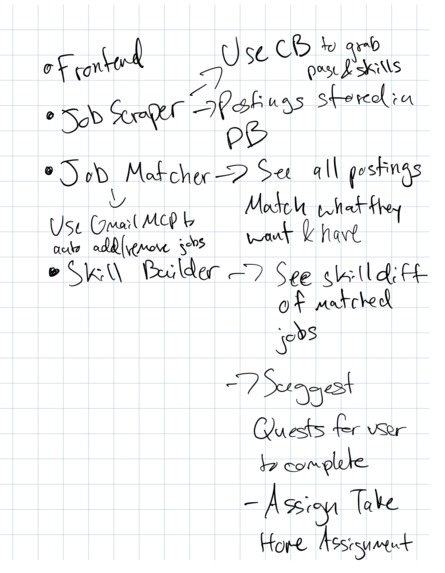 • Frontend
→ Use CB to grab
page & skills
• Job Scraper → Postings stored in
DB
• Job Matcher → See all postings
Match what they
want & have
Use Gmail MCP to
auto add/remove jobs
• Skill Builder → See skill diff
of matched
jobs
→ Suggest
Quests for user
to complete
- Assign Take
Home Assignment